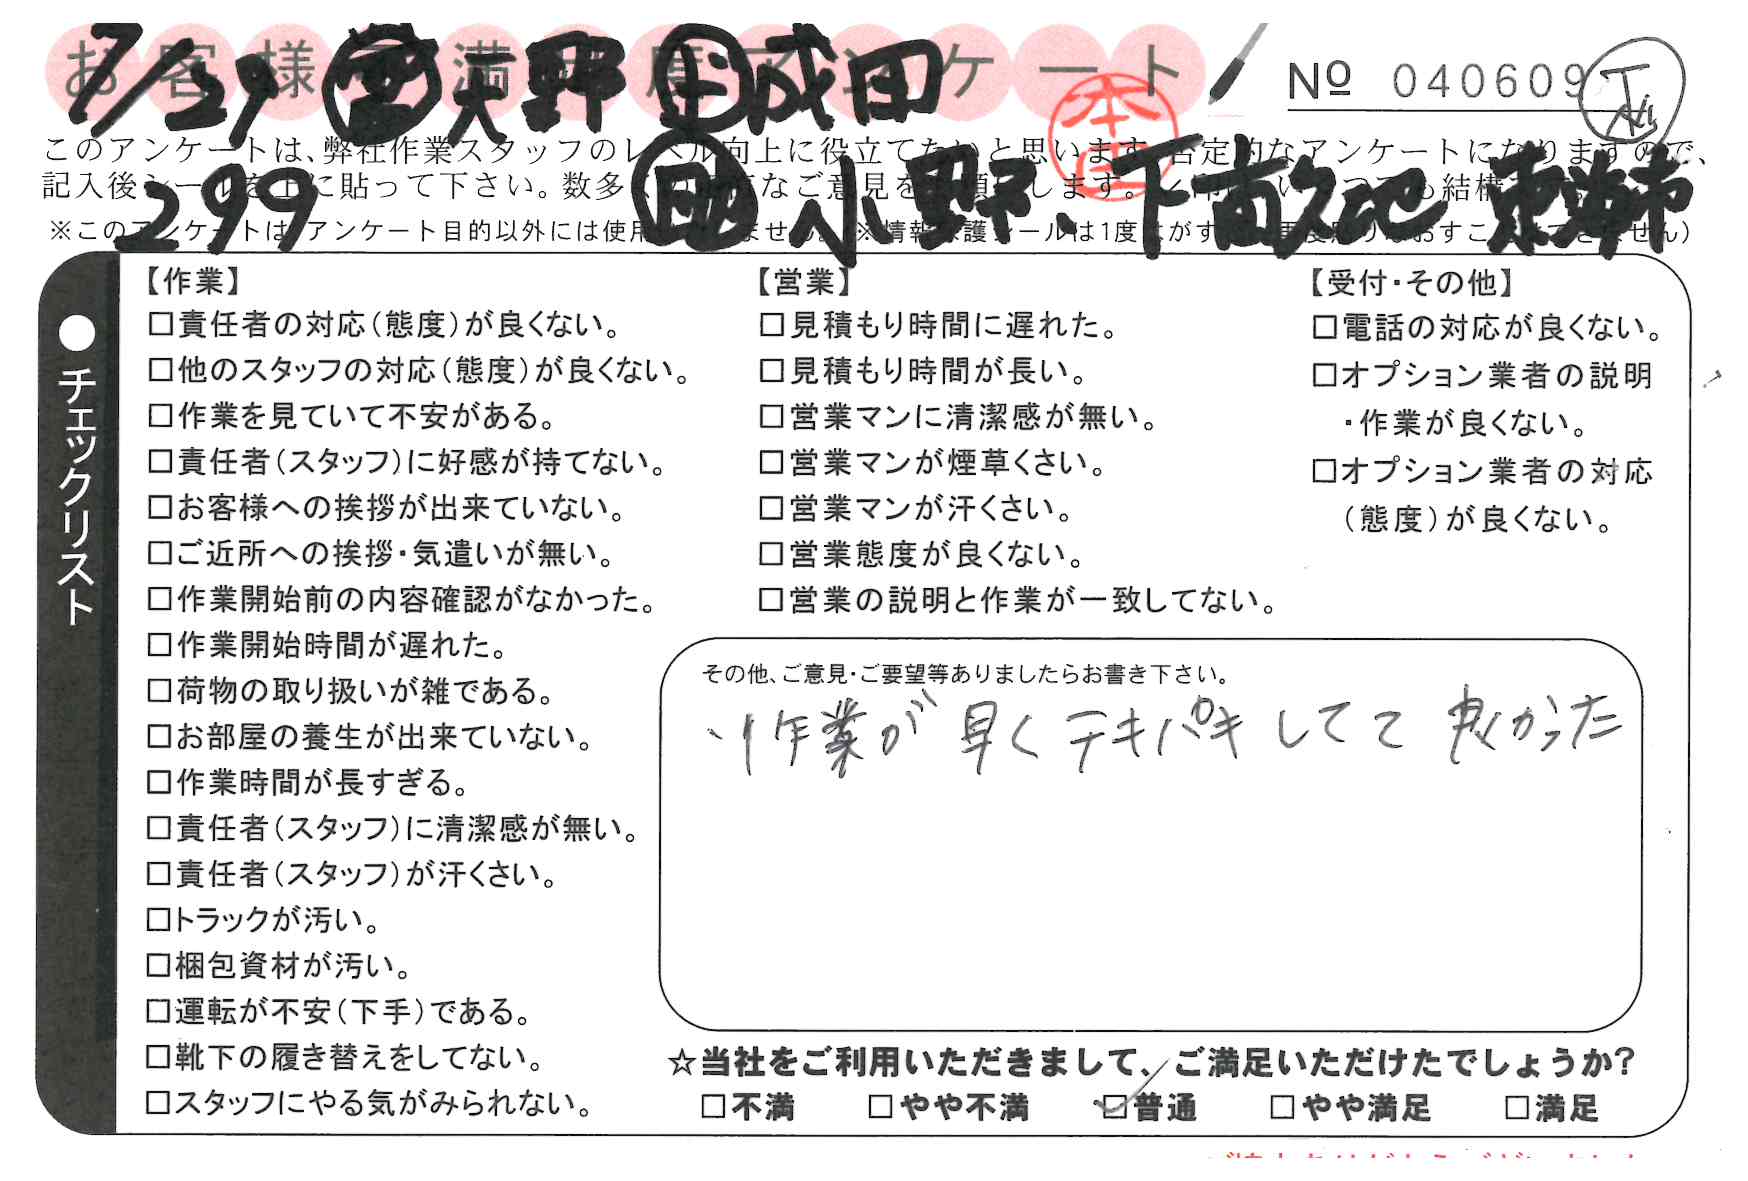 お客様 満 度アンケート
7/29 営 天野 成田
本店
Nº 040609
このアンケートは、弊社作業スタッフのレベル向上に役立てたいと思います。否定的なアンケートになりますので、
記入後シールを上に貼って下さい。数多く なご意見を お願 します。 も結構
299 助 小野、下 東海市
※このアンケートは アンケート目的以外には使用 ません。(※情報保護シールは1度はがす 再度貼りなおすことはできません)
●チェックリスト
【作業】
□責任者の対応(態度)が良くない。
□他のスタッフの対応(態度)が良くない。
□作業を見ていて不安がある。
□責任者(スタッフ)に好感が持てない。
□お客様への挨拶が出来ていない。
□ご近所への挨拶・気遣いが無い。
□作業開始前の内容確認がなかった。
□作業開始時間が遅れた。
□荷物の取り扱いが雑である。
□お部屋の養生が出来ていない。
□作業時間が長すぎる。
□責任者(スタッフ)に清潔感が無い。
□責任者(スタッフ)が汗くさい。
□トラックが汚い。
□梱包資材が汚い。
□運転が不安(下手)である。
□靴下の履き替えをしてない。
□スタッフにやる気がみられない。
【営業】
□見積もり時間に遅れた。
□見積もり時間が長い。
□営業マンに清潔感が無い。
□営業マンが煙草くさい。
□営業マンが汗くさい。
□営業態度が良くない。
□営業の説明と作業が一致してない。
【受付・その他】
□電話の対応が良くない。
□オプション業者の説明
・作業が良くない。
□オプション業者の対応
(態度)が良くない。
その他、ご意見・ご要望等ありましたらお書き下さい。
作業が早くテキパキしてて良かった
☆当社をご利用いただきまして、ご満足いただけたでしょうか?
□不満 □やや不満 ☑普通 □やや満足 □満足